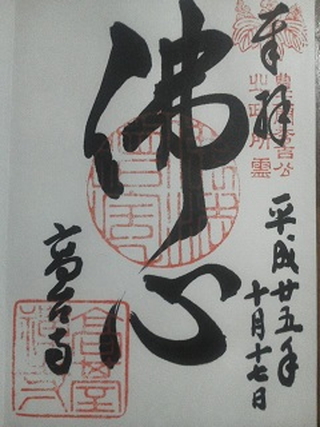 奉拝
豊臣秀吉公
北政所霊
平成廿五年
十月十七日
佛心
高台寺